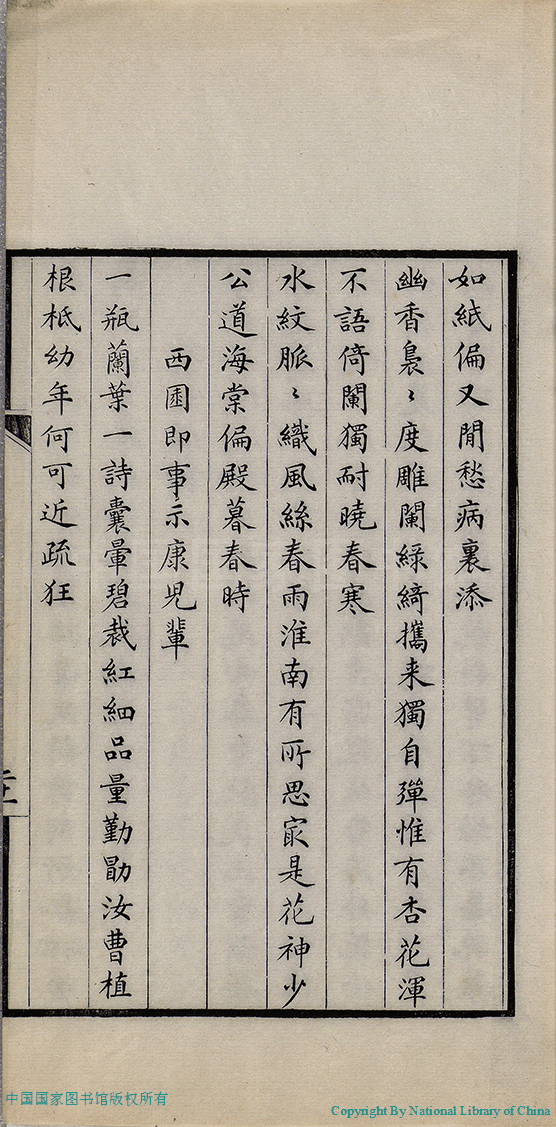 如紙偏又閒愁病裏添
幽香裊〻度雕闌綠綺攜来獨自彈惟有杏花渾
不語倚闌獨耐曉春寒
水紋脈〻織風絲春雨淮南有所思冣是花神少
公道海棠偏殿暮春時
西園即事示康児輩
一瓶蘭葉一詩囊暈碧裁紅細品量勤勖汝曹植
根柢幼年何可近疏狂
中国国家图书馆版权所有
Copyright By National Library of China